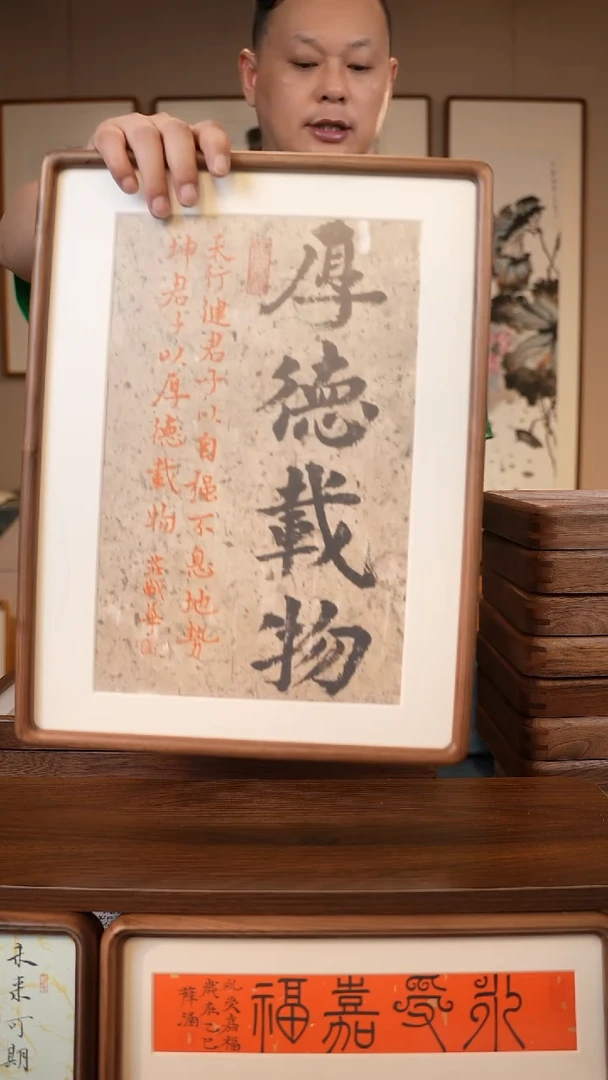 厚德載物
天行健君子以自强不息地勢
坤君子以厚德載物
永受嘉福
永受嘉福
歲在乙巳
未来可期